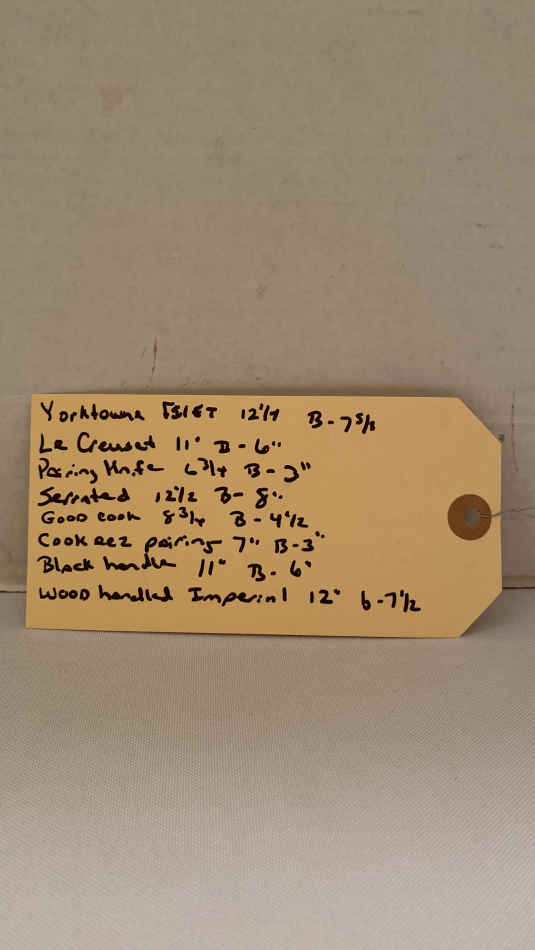 Yorktowne 12 1/4 B-7 5/8
Le Creuset 11" B-6"
Pairing Knife 6 3/4 B-3"
Serrated 12 1/2 B-8"
Good cook 8 3/4 B-4 1/2
Cook eez pairing 7" B-3"
Black handle 11" B-6"
Wood handled Imperial 12" b-7 1/2